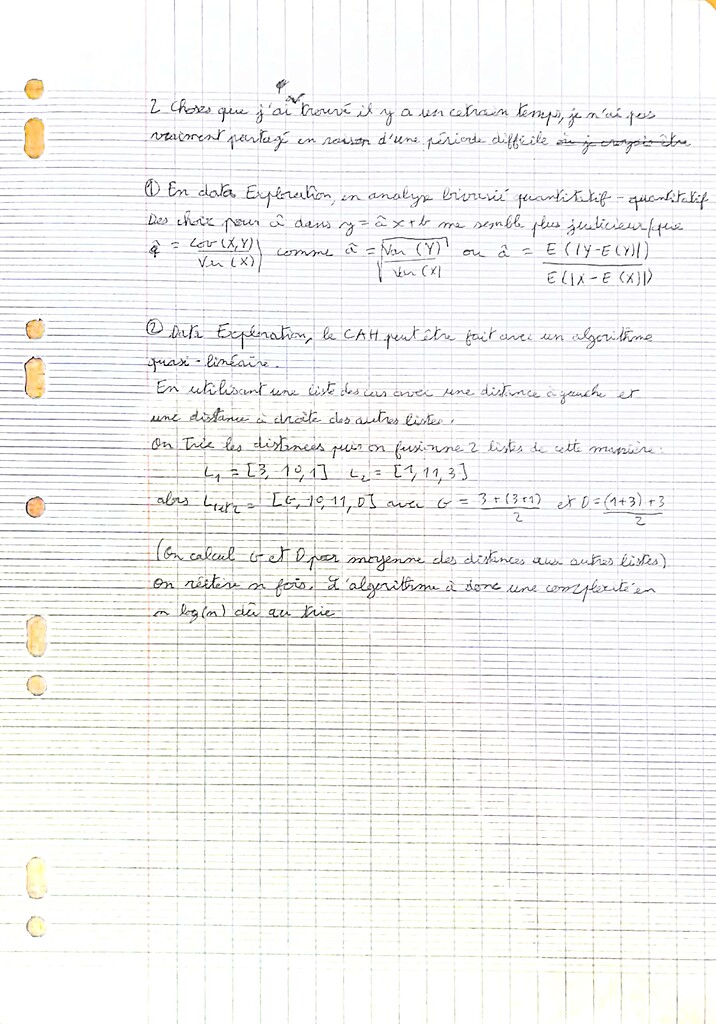 2 Choses que j'ai trouvé il y a un cetrain temps, je n'ai pas
vraiment partagé en raison d'une période difficile
① En data Exploration, en analyse bivarié quantitatif - quantitatif
Des choix pour â dans y = â x + b me semble plus judicieux que
â = Cov(X,Y) / Var(X) comme â = √(Var(Y) / Var(X)) ou â = E(|Y-E(Y)|) / E(|X-E(X)|)
② Data Exploration, le CAH peut être fait avec un algorithme
quasi-linéaire.
En utilisant une liste des cas avec une distance à gauche et
une distance à droite des autres listes.
On trie les distances puis on fusionne 2 listes de cette manière:
L₁ = [3, 10, 1] L₂ = [1, 11, 3]
alors L₁₊₂ = [G, 10, 11, D] avec G = (3+(3+1))/2 et D = ((1+3)+3)/2
(On calcul G et D par moyenne des distances aux autres listes)
On réitère n fois. L'algorithme à donc une complexité en
n log(n) dû au trie